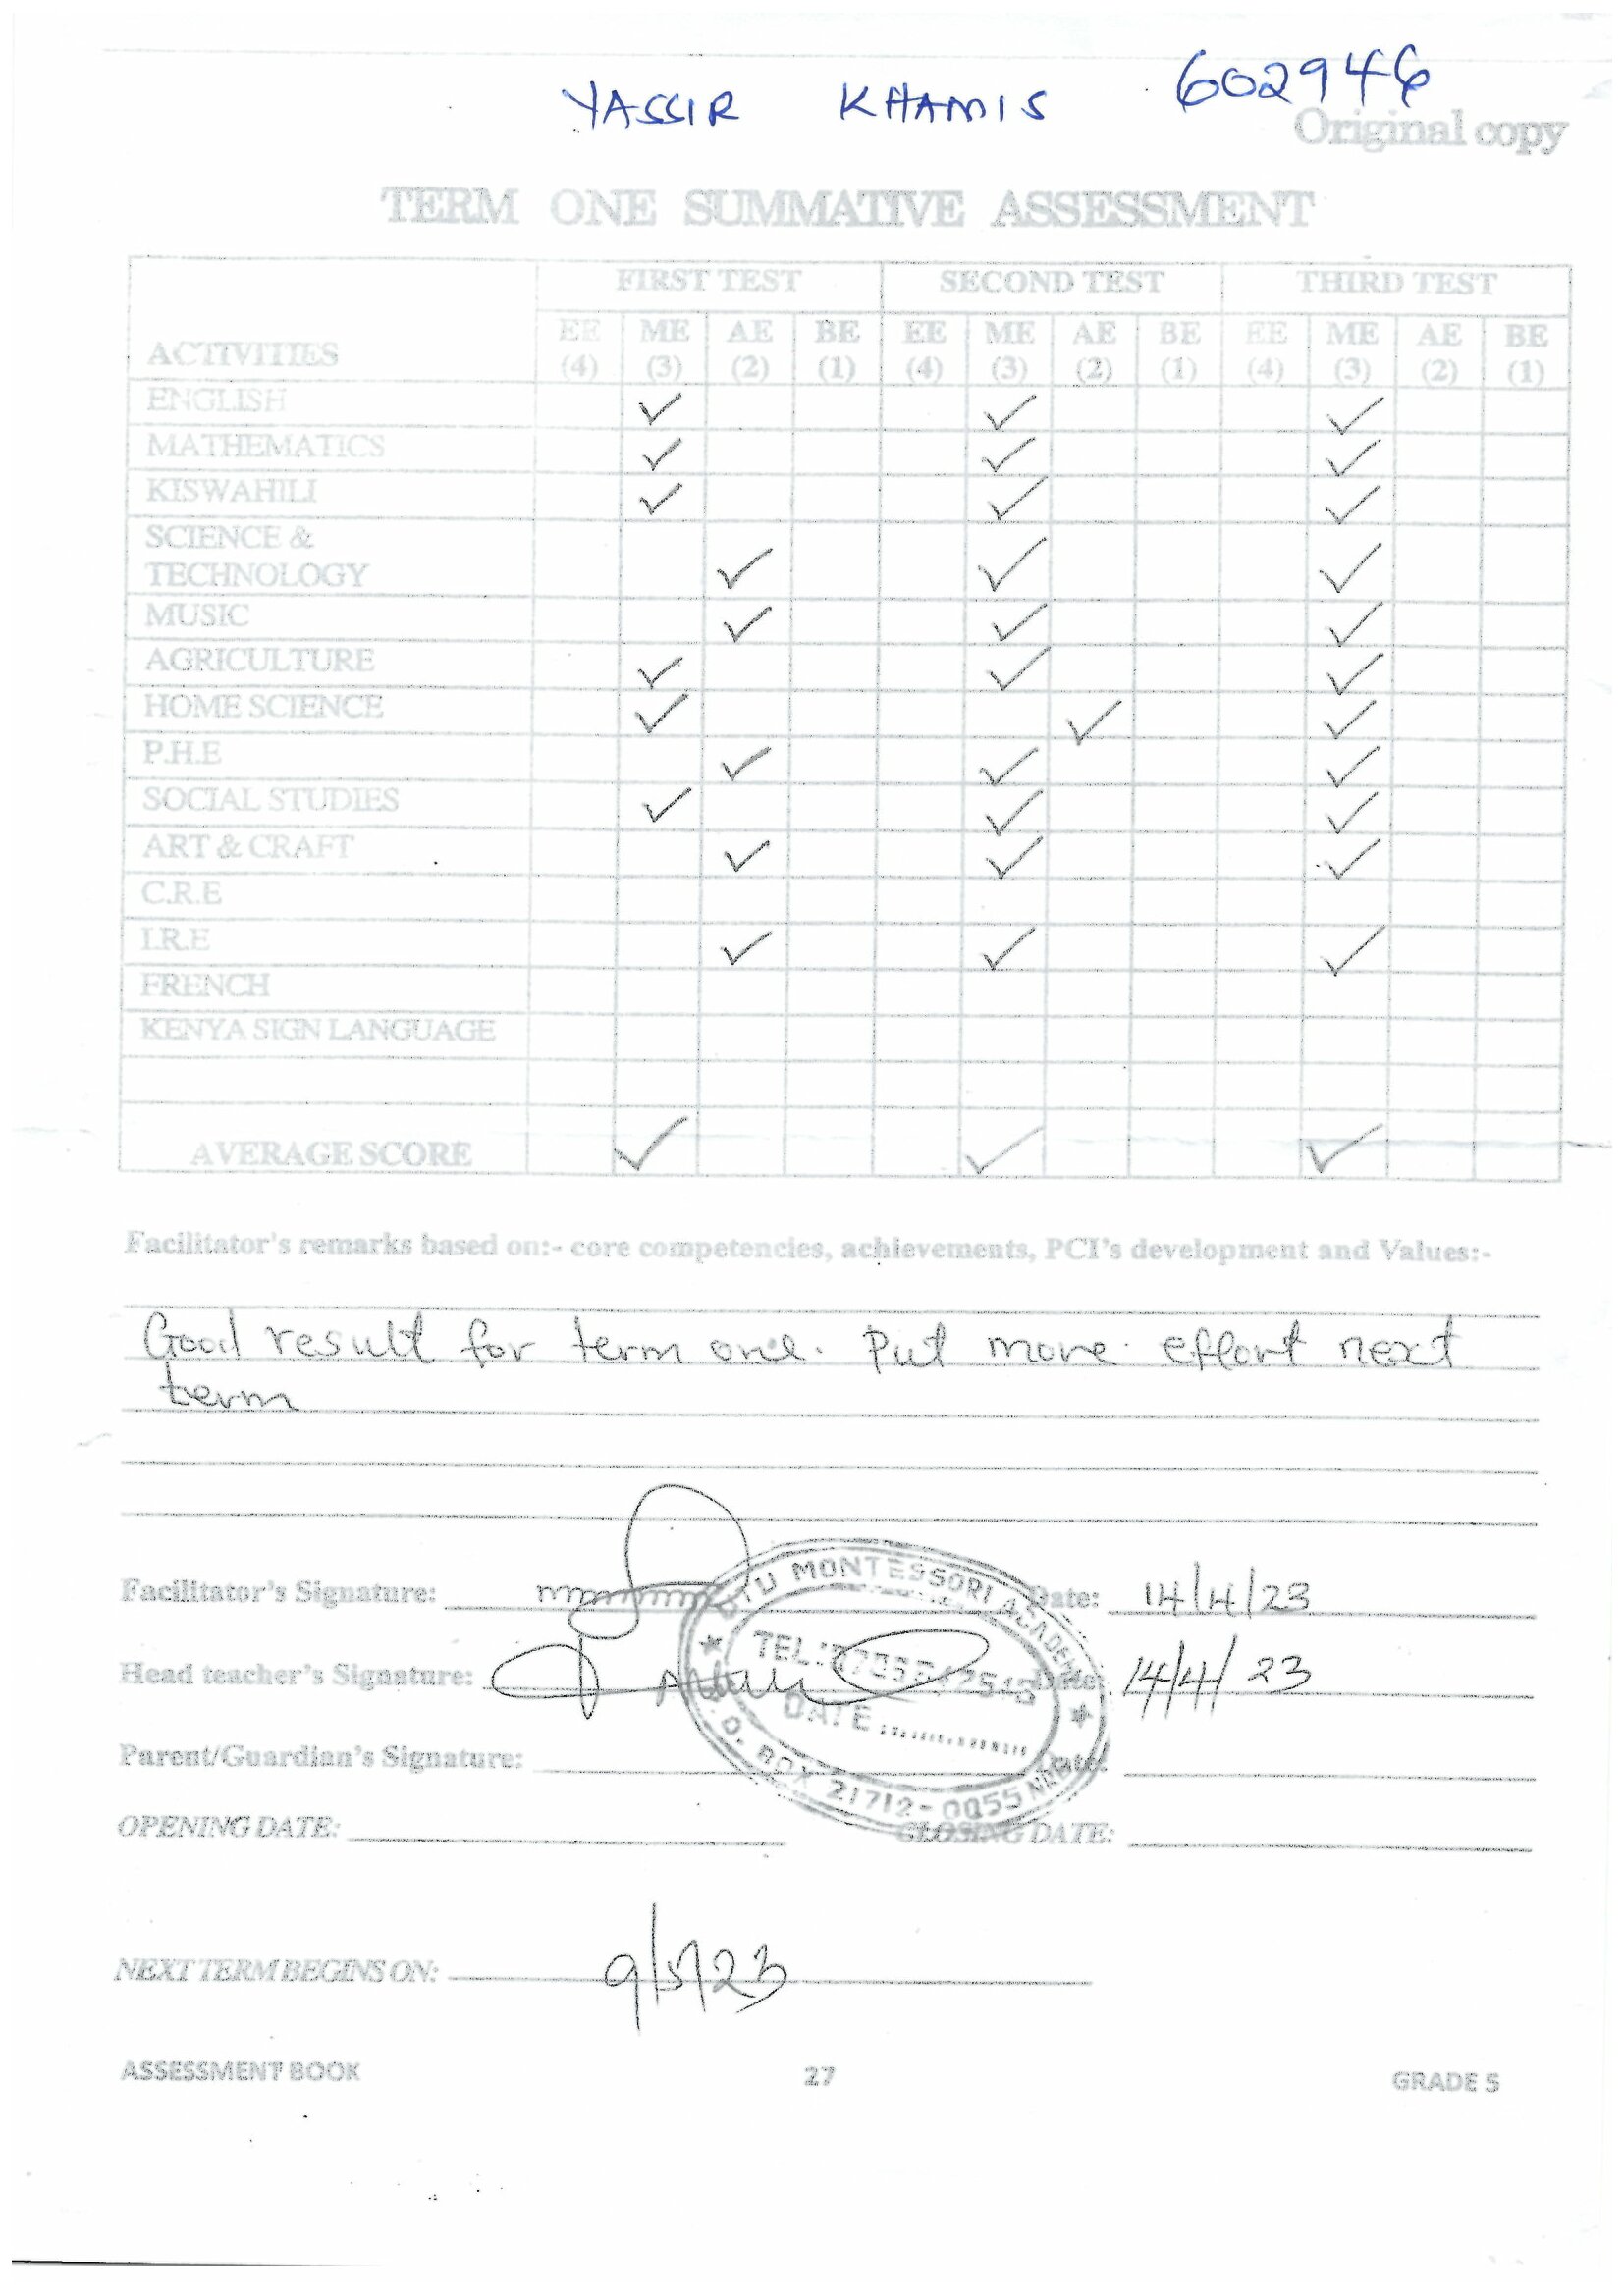 YASSIR KHAMIS 602946
Original copy
TERM ONE SUMMATIVE ASSESSMENT
FIRST TEST SECOND TEST THIRD TEST
ACTIVITIES EE (4) ME (3) AE (2) BE (1) EE (4) ME (3) AE (2) BE (1) EE (4) ME (3) AE (2) BE (1)
ENGLISH ✓ ✓ ✓
MATHEMATICS ✓ ✓ ✓
KISWAHILI ✓ ✓ ✓
SCIENCE &
TECHNOLOGY ✓ ✓ ✓
MUSIC ✓ ✓ ✓
AGRICULTURE ✓ ✓ ✓
HOME SCIENCE ✓ ✓ ✓
P.H.E ✓ ✓ ✓
SOCIAL STUDIES ✓ ✓ ✓
ART & CRAFT ✓ ✓ ✓
C.R.E
I.R.E ✓ ✓ ✓
FRENCH
KENYA SIGN LANGUAGE
AVERAGE SCORE ✓ ✓ ✓
Facilitator's remarks based on:- core competencies, achievements, PCI's development and Values:-
Good result for term one. Put more effort next
term
Facilitator's Signature: Date: 14/4/23
Head teacher's Signature: Date: 14/4/23
Parent/Guardian's Signature: Date:
MONTESSORI ACADEMY
TEL:
DATE
BOX 21712-0055
OPENING DATE: CLOSING DATE:
NEXT TERM BEGINS ON: 9/5/23
ASSESSMENT BOOK 27 GRADE 5